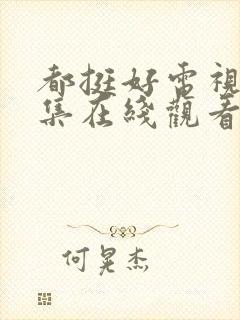 都挺好電視
集在綫觀看
何晃杰